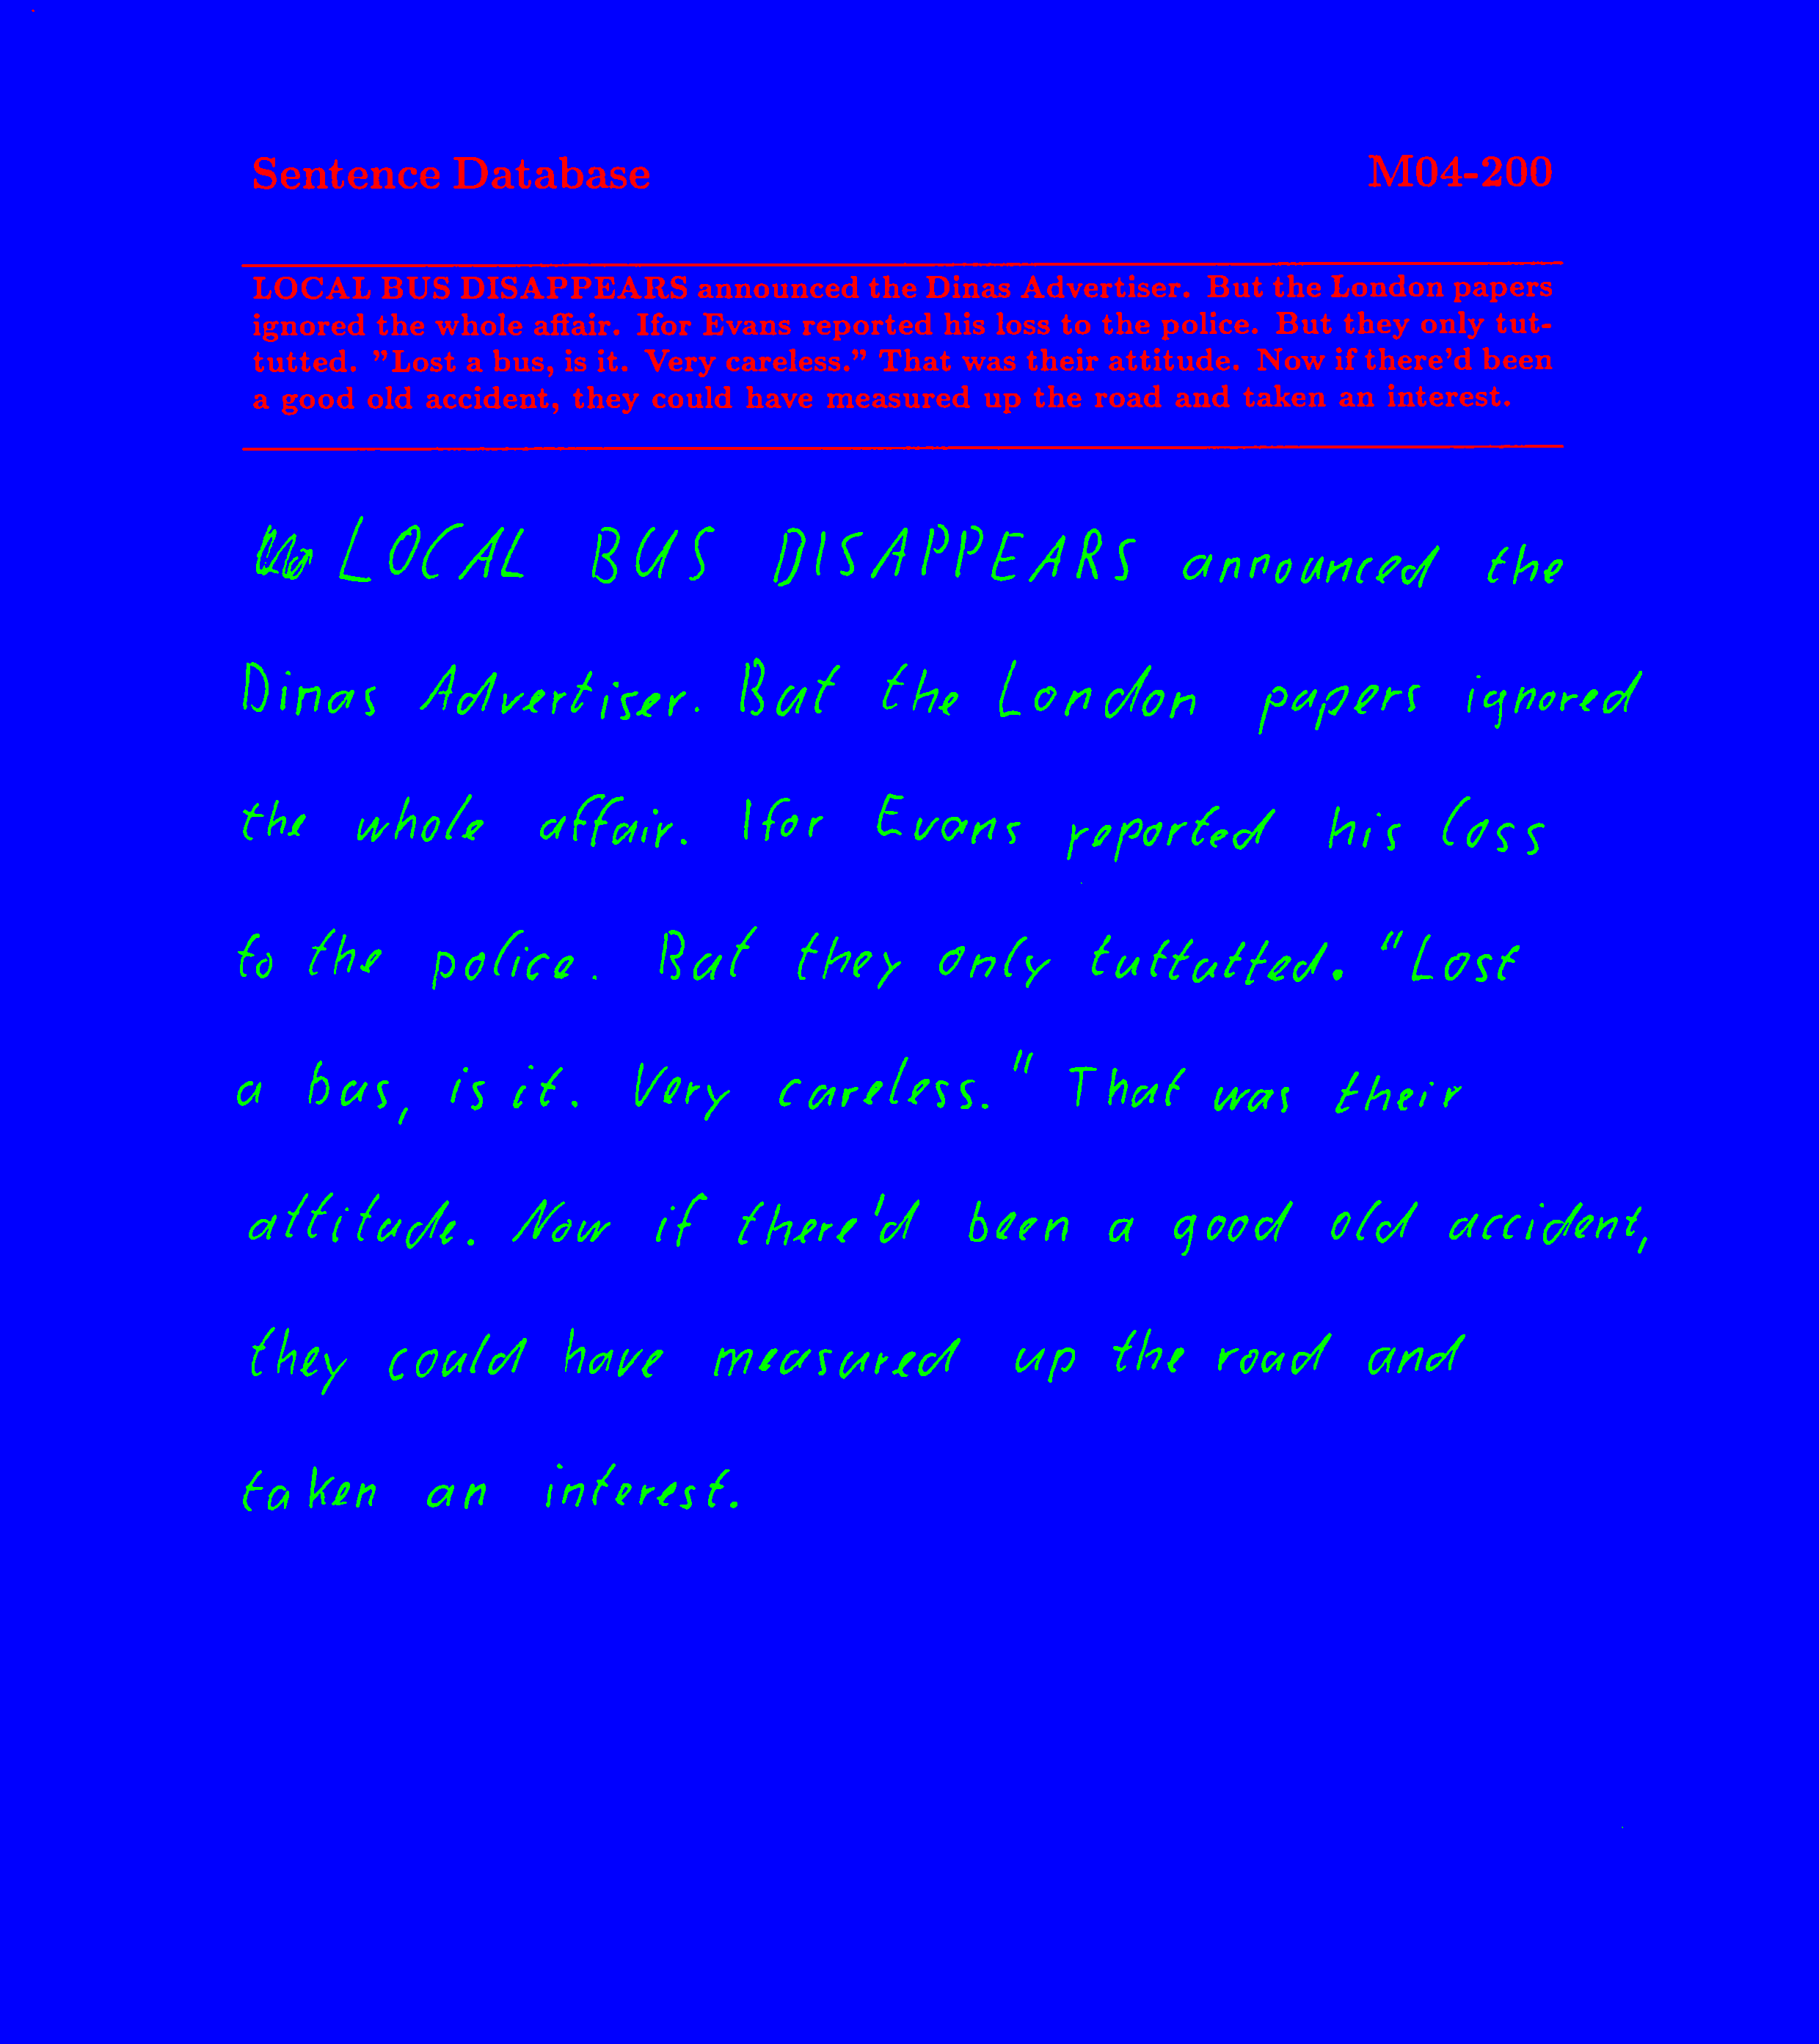 Sentence Database M04-200
LOCAL BUS DISAPPEARS announced the Dinas Advertiser. But the London papers
ignored the whole affair. Ifor Evans reported his loss to the police. But they only tut-
tutted. "Lost a bus, is it. Very careless." That was their attitude. Now if there'd been
a good old accident, they could have measured up the road and taken an interest.
LOCAL BUS DISAPPEARS announced the
Dinas Advertiser. But the London papers ignored
the whole affair. Ifor Evans reported his loss
to the police. But they only tuttutted. "Lost
a bus, is it. Very careless." That was their
attitude. Now if there'd been a good old accident,
they could have measured up the road and
taken an interest.